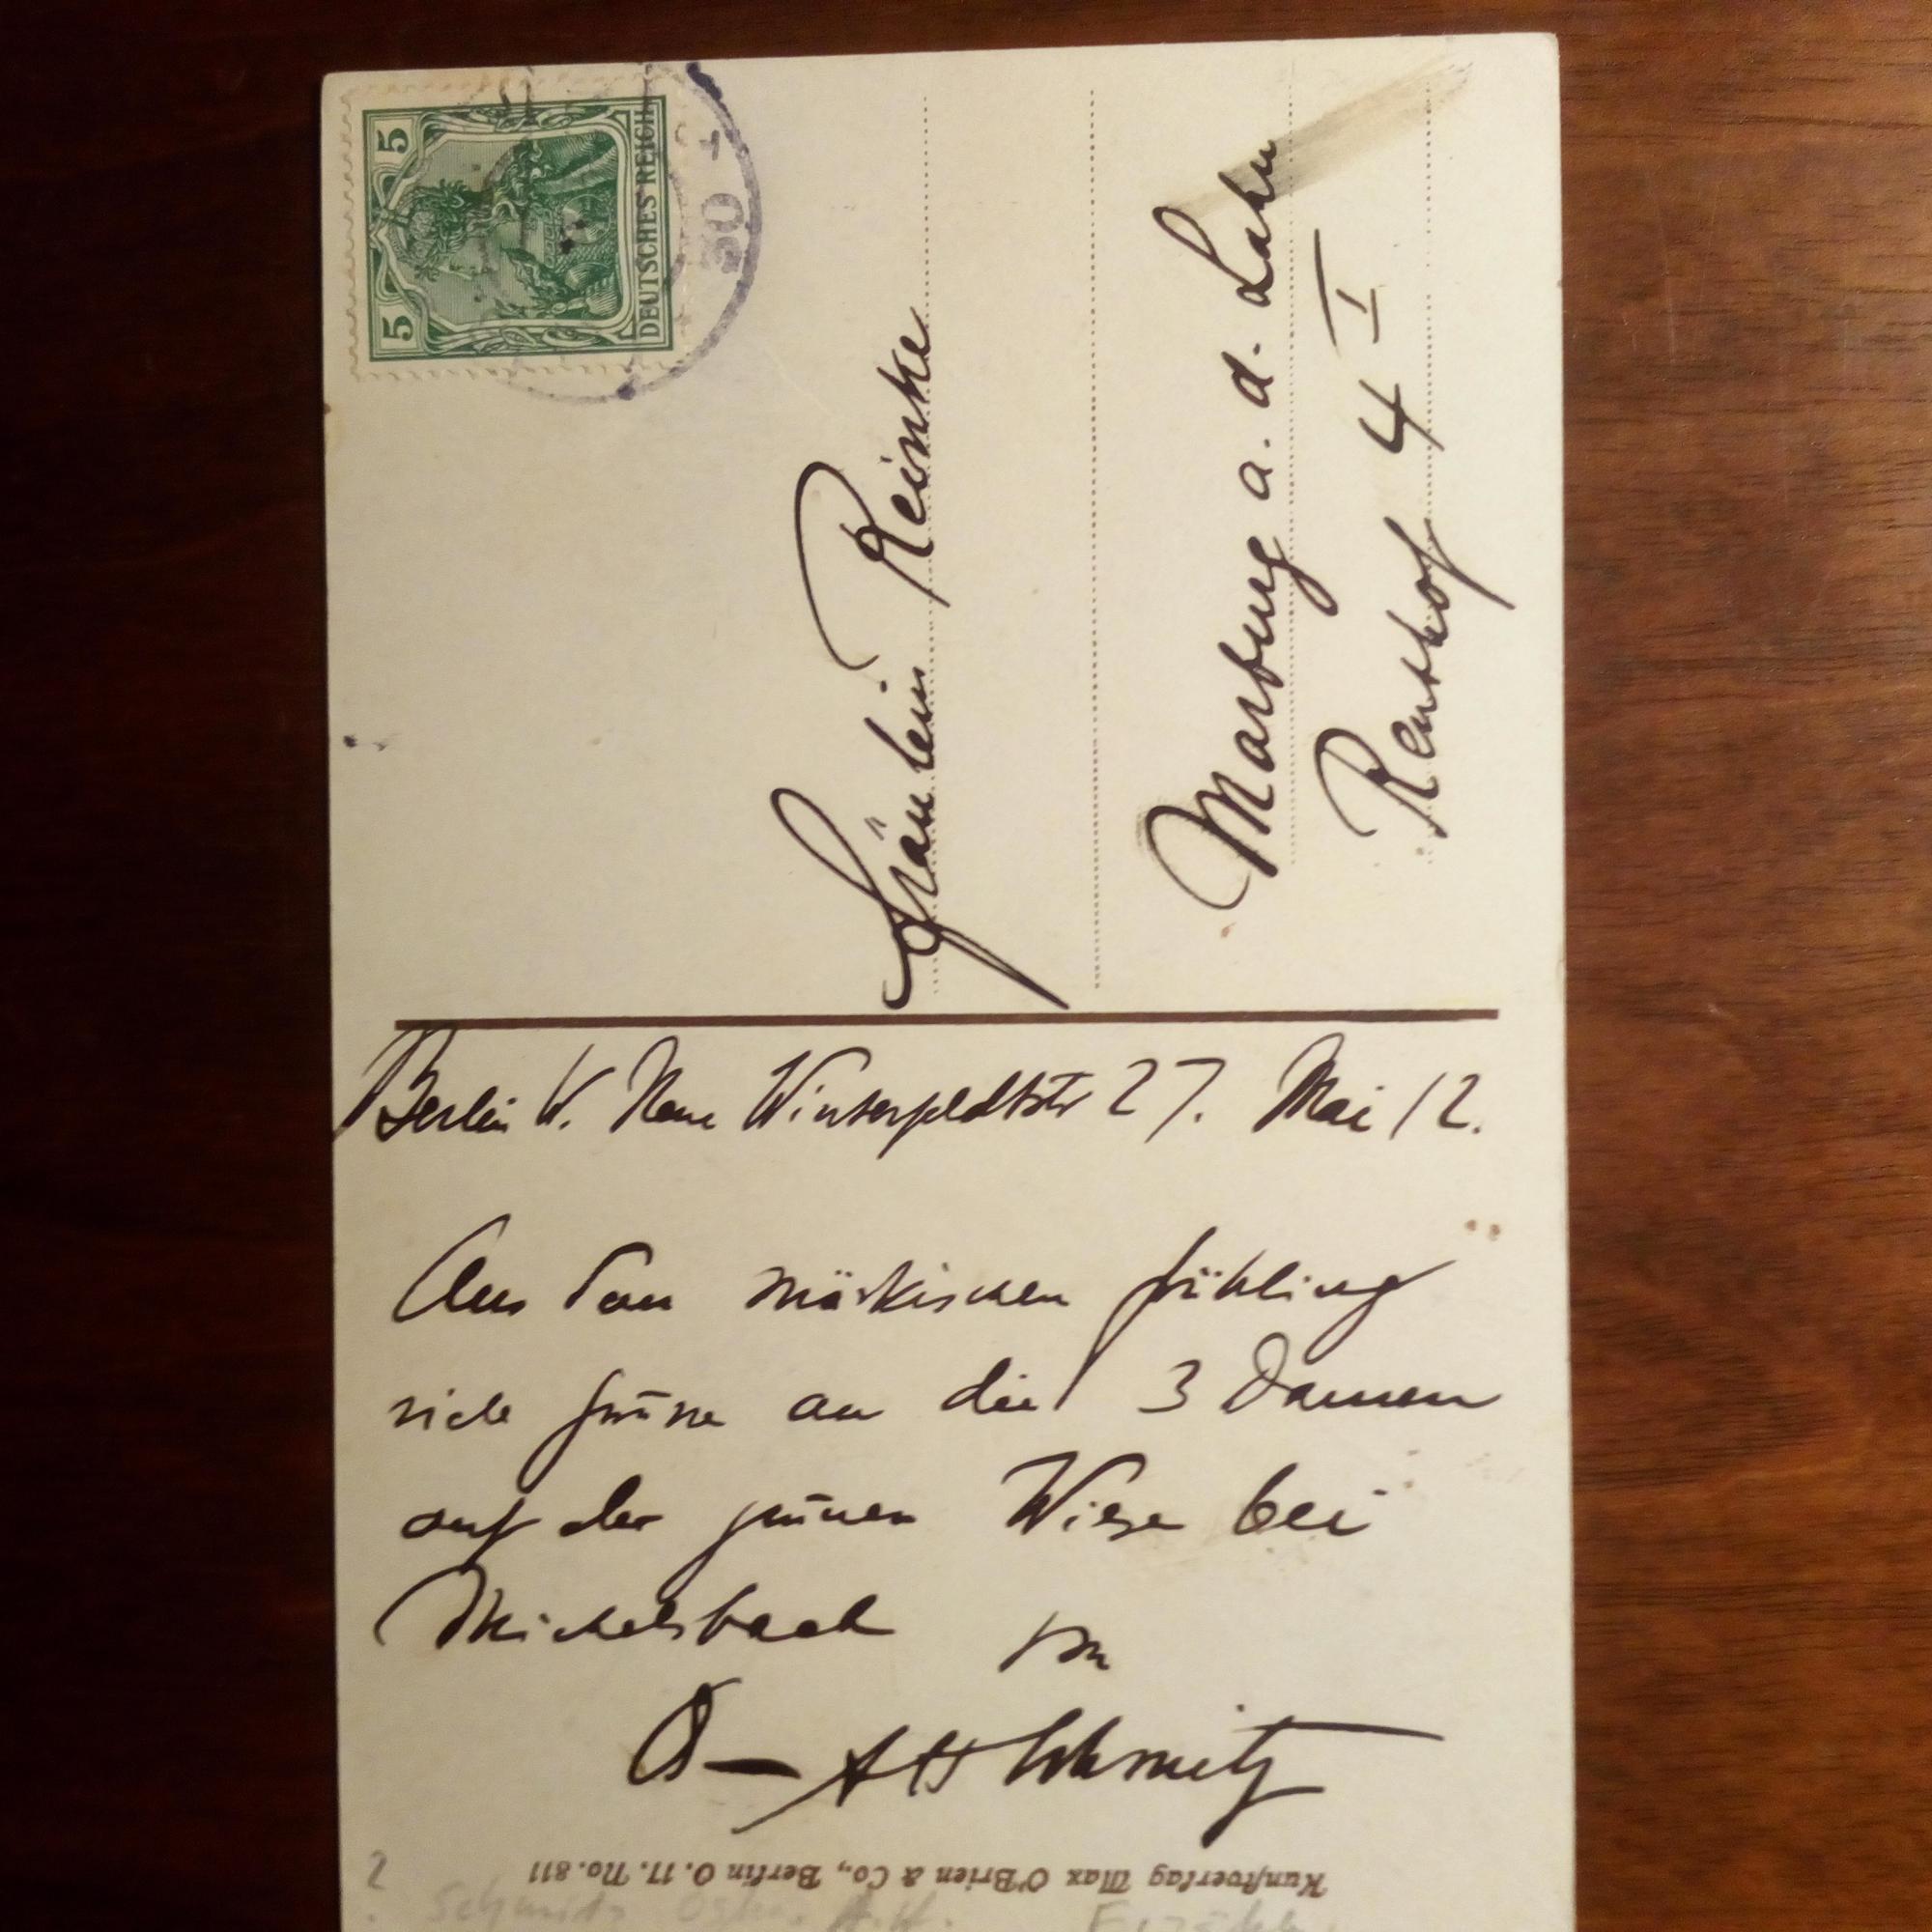 5 5
DEUTSCHES REICH
50
Fräulein Reinke
Marburg a. d. Lahn
Renthof 4 I
Berlin W. Neue Winterfeldtstr 27. Mai 12.
Aus dem märkischen Frühling
viele Grüsse an die 3 Damen
auf der grünen Wiese bei
Michelbach von
O— A H Schmitz
Kunstverlag Max O'Brien & Co., Berlin O. 17. No. 811
?
Schmitz Oskar A.H.